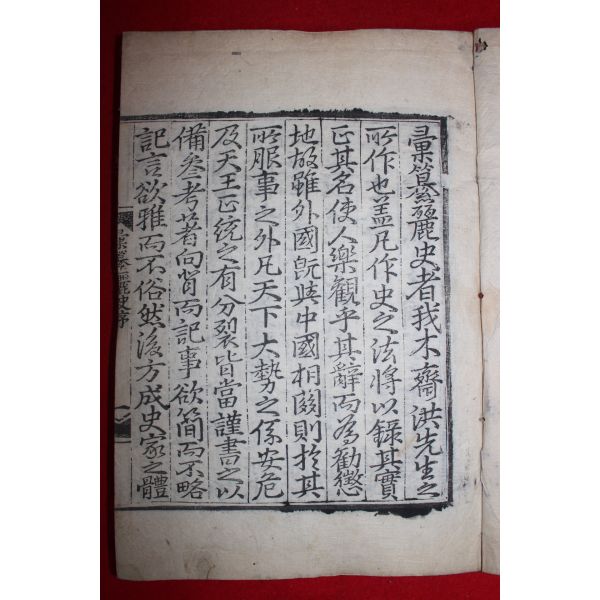 彙纂麗史者我木齋洪先生之
所作也盖凡作史之法將以錄其實
正其名使人樂觀乎其辭而為勸懲
地故雖外國旣與中國相關則於其
所服事之外凡天下大勢之係安危
及天王正統之有分裂皆當謹書之以
備參考著向背而記事欲簡而不略
記言欲雅而不俗然後方成史家之體
彙纂麗史序
一